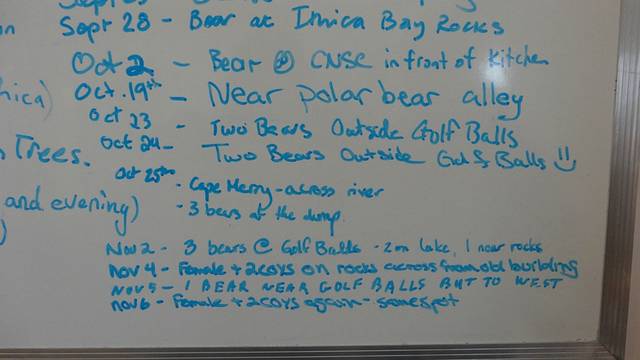 Sept 28 - Bear at Ithica Bay Rocks
on
Oct 2 - Bear @ CNSC in front of kitchen
hica) Oct. 19th - Near polar bear alley
Oct 23 - Two Bears Outside Golf Balls
Trees. Oct 24 - Two Bears Outside Golf Balls
Oct 25th - Cape Merry - across river
and evening) - 3 bears at the dump.
)
Nov 2 - 3 bears @ Golf Balls - 2 on lake, 1 near rocks
Nov 4 - Female + 2 coys on rocks across from old building
Nov 5 - 1 BEAR NEAR GOLF BALLS BUT TO WEST
Nov 6 - Female + 2 coys again - same spot